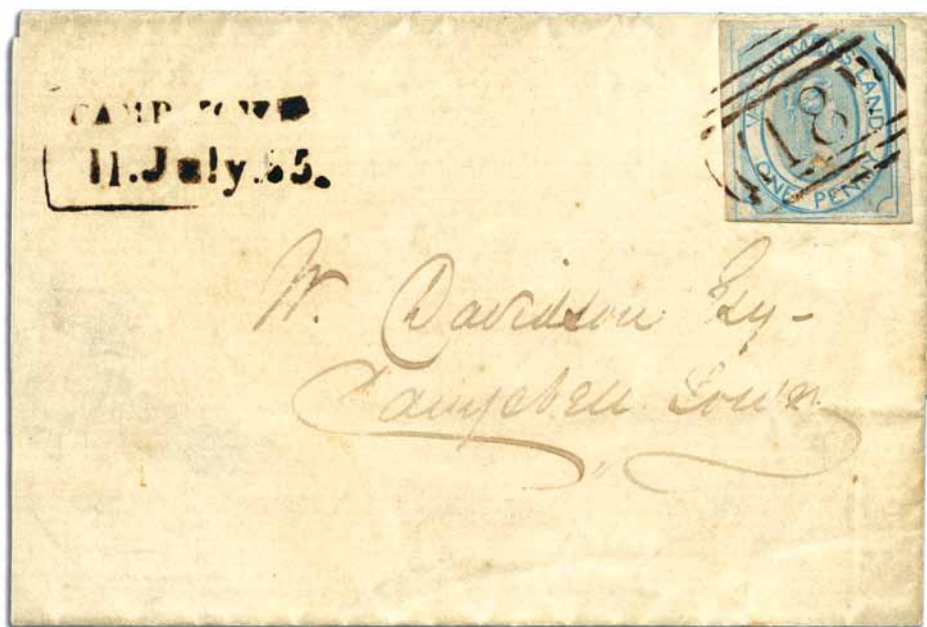 CAMP. TOWN
11.July.55.
VAN DIEMEN'S LAND
18
ONE PENNY
W. Davidson Esq-
Campbell Town